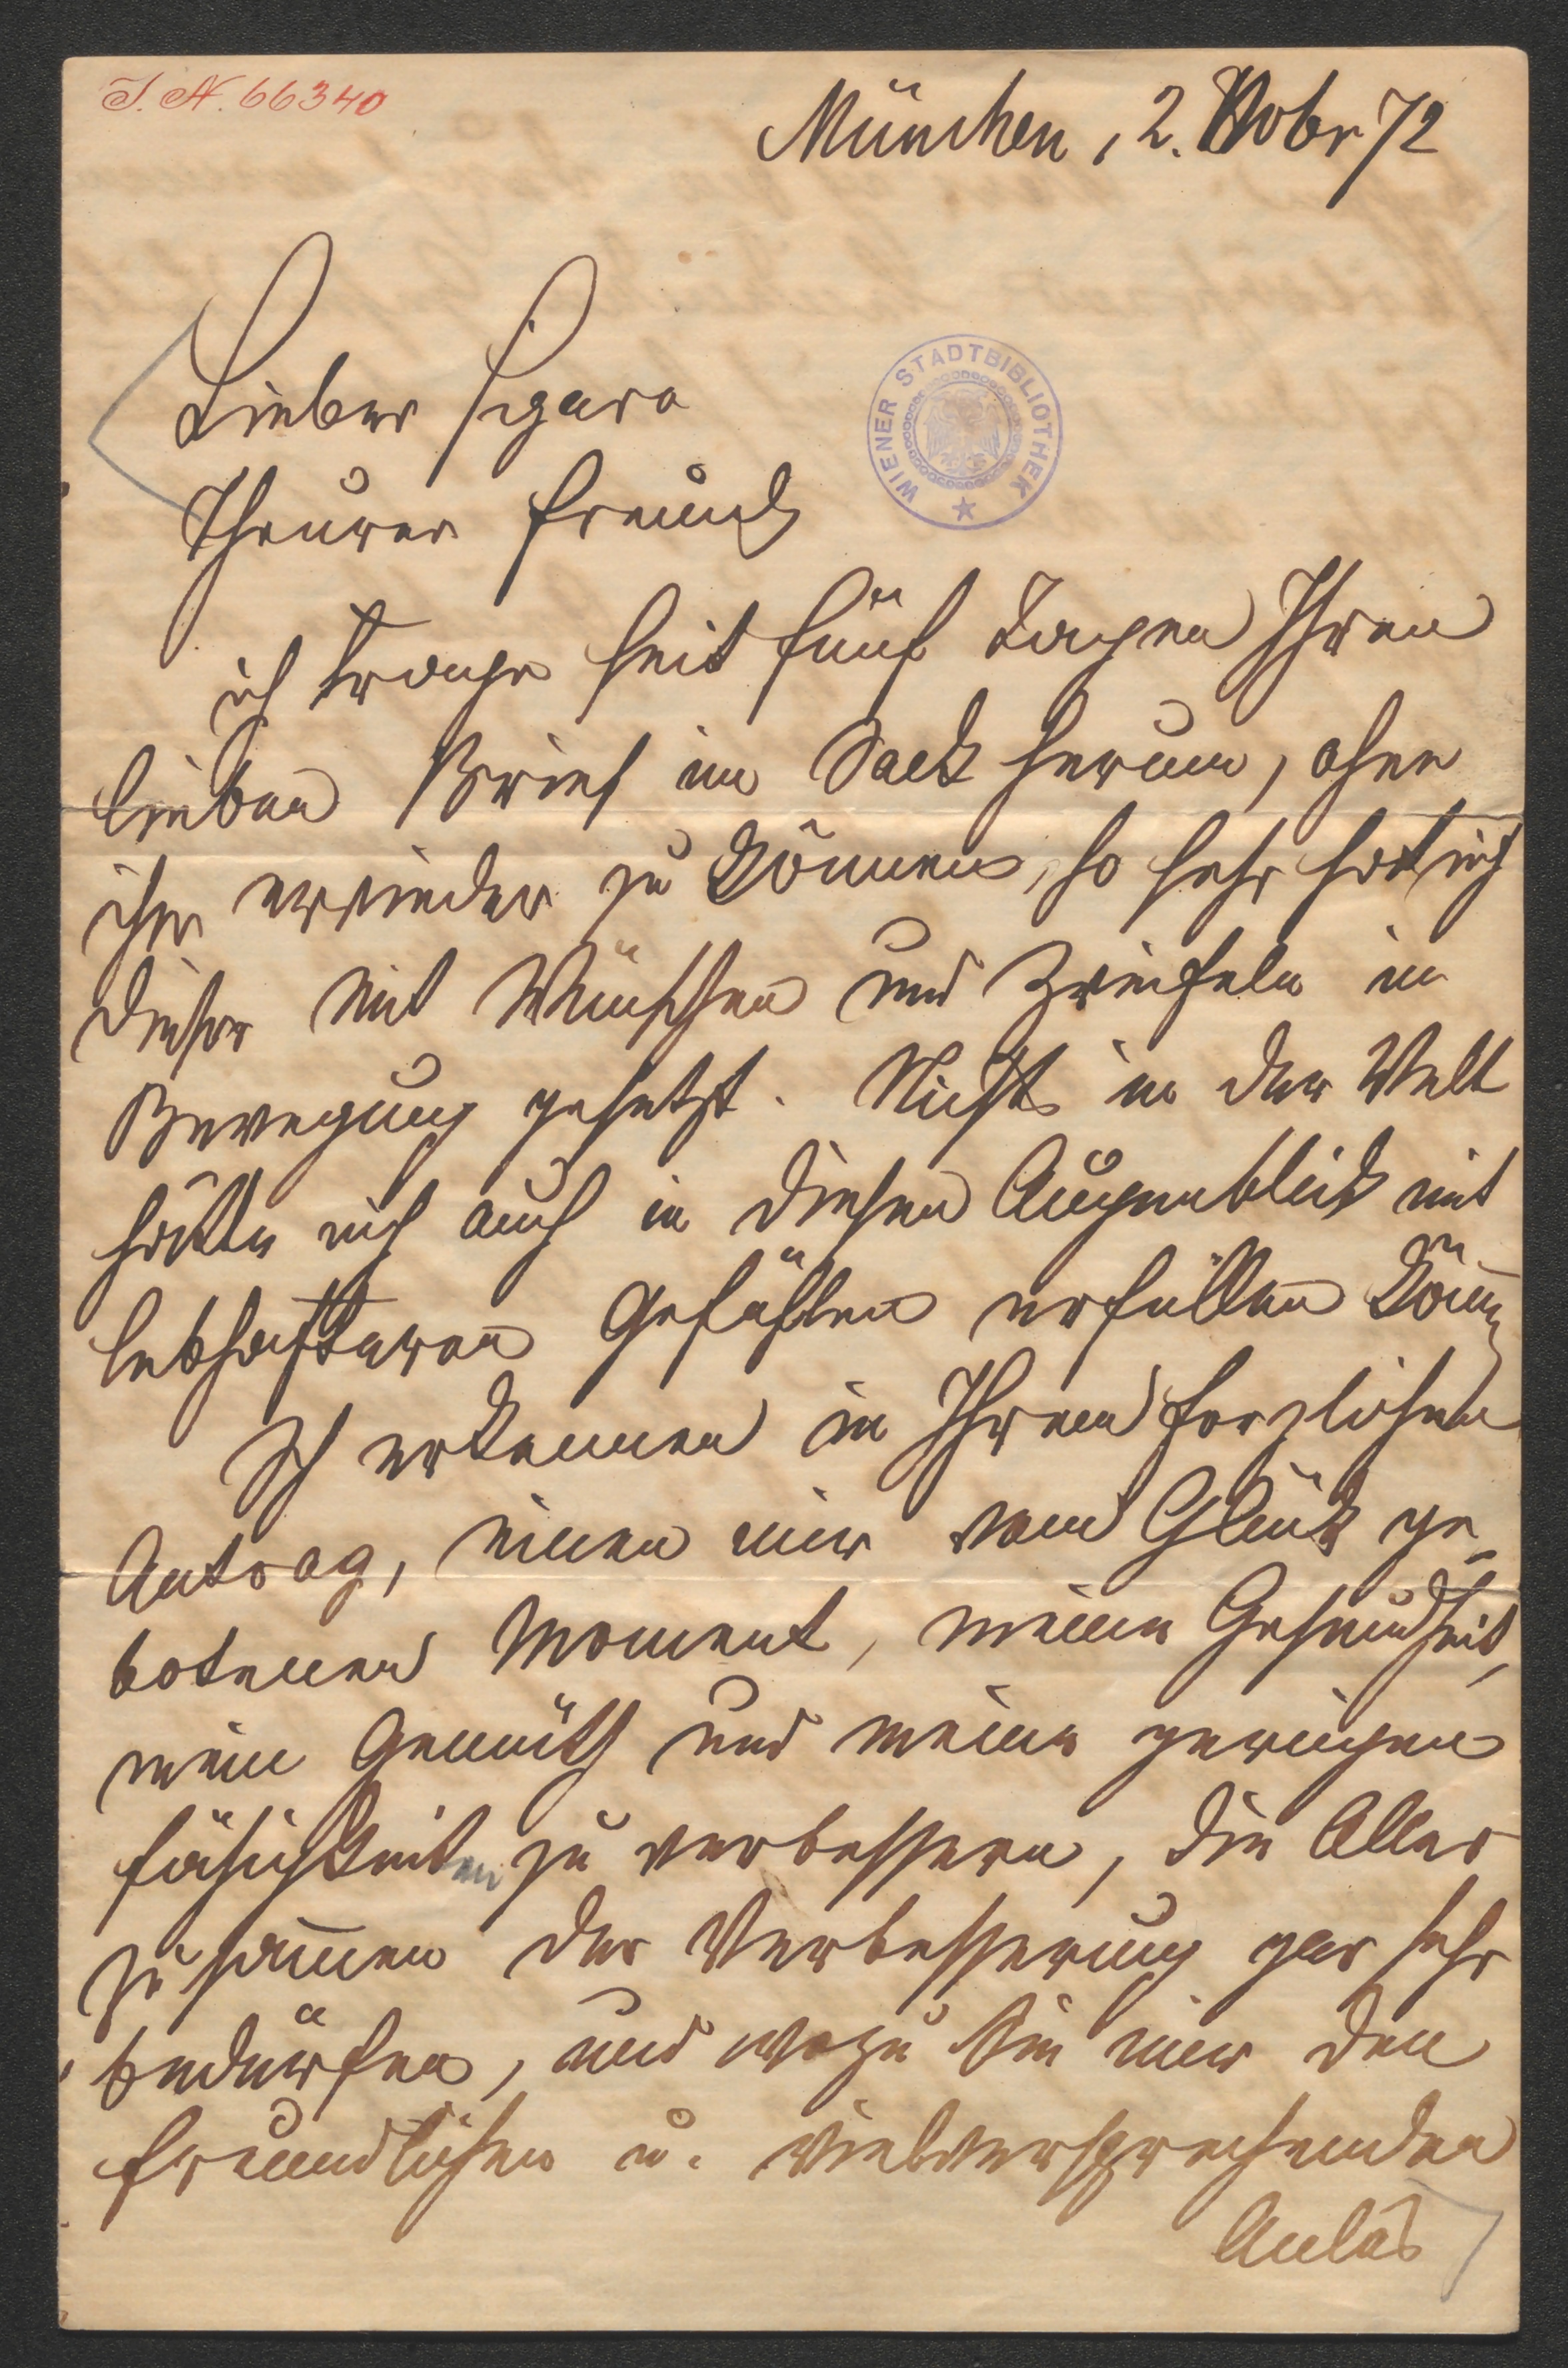 I. N. 66340
München, 2. Nobr 72
Lieber Figaro
WIENER STADTBIBLIOTHEK
Theurer Freund
ich trage seit fünf Tagen Ihren
lieben Brief im Sack herum, ohne
ihn erwiedern zu können, so sehr hat mich
dieser mit Wünschen und Zweifeln in
Bewegung gesetzt. Nichts in der Welt
hätte mich auch in diesen Augenblick mit
lebhafteren Gefühlen erfüllen könn
Ich erkennen in Ihrem herzlichen
Antrag, einen mir vom Glück ge-
botenen Moment, meine Gesundheit,
mein Gemüth und meine geringen
Fähigkeiten zu verbessern, die Alle
zusam̅en der Verbesserung gar sehr
bedürfen, und wozu Sie mir den
freundlichen u. vielversprechenden
Anlaß